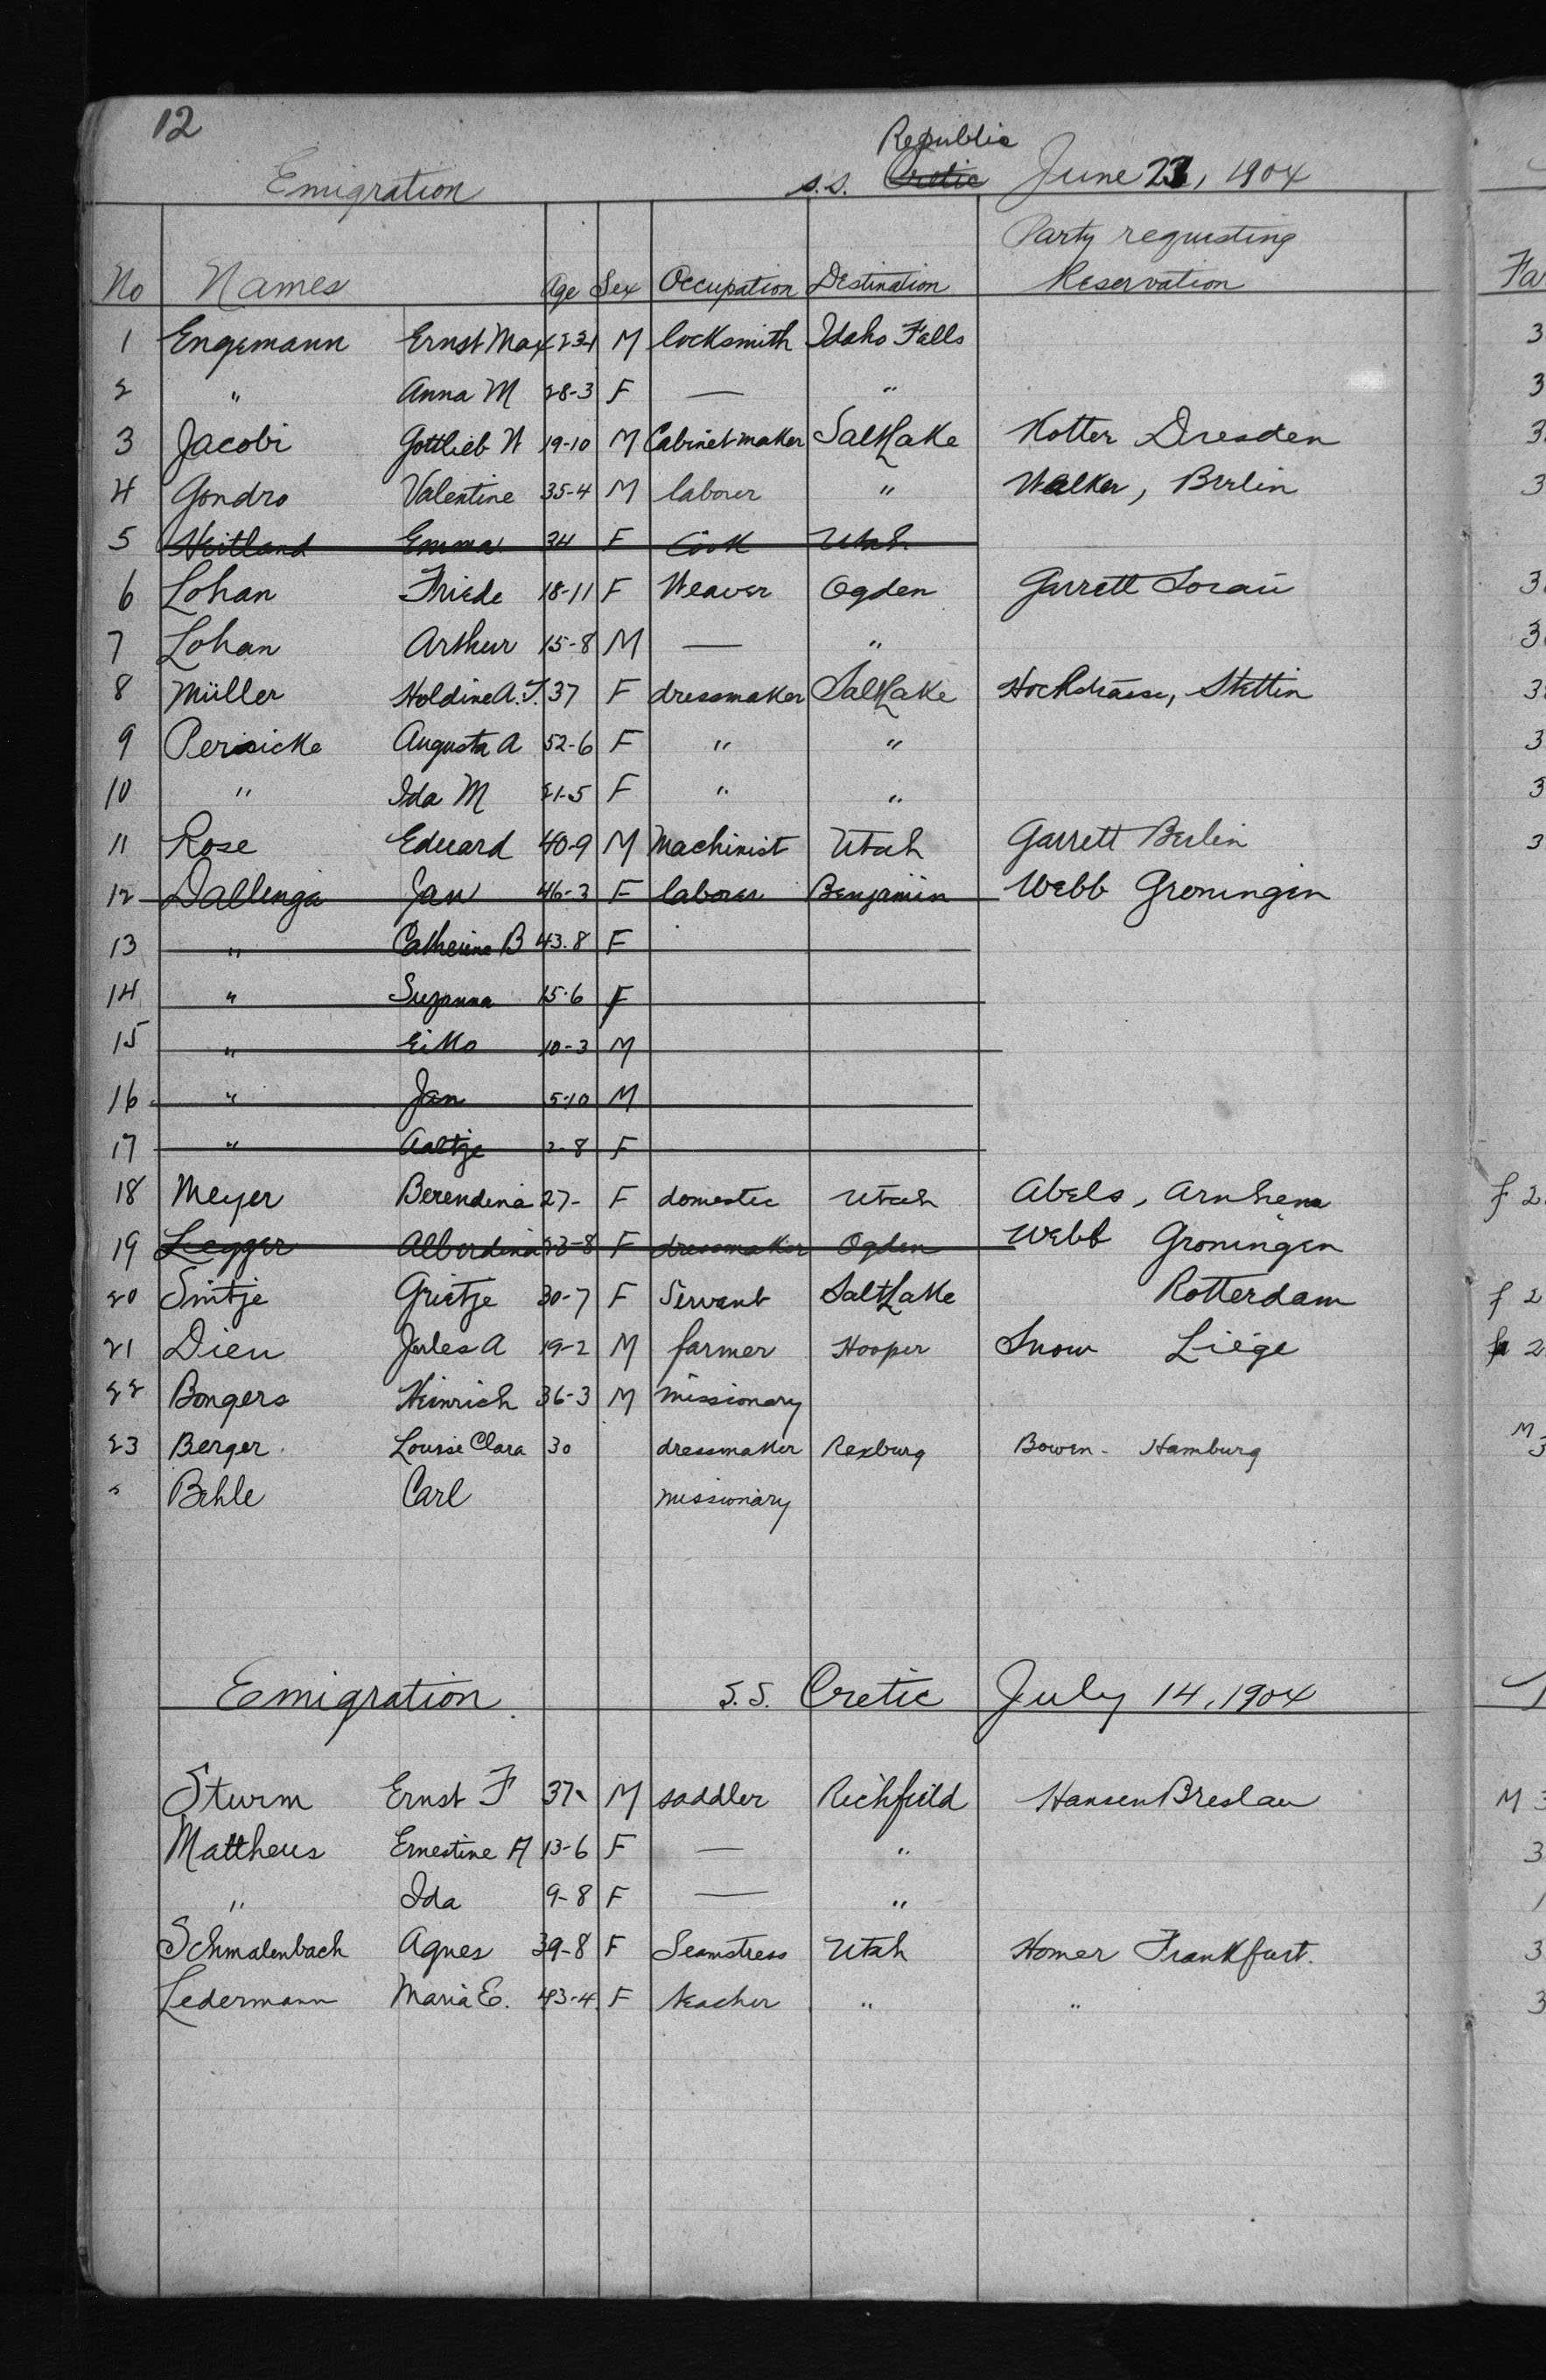 12
Republic
Emigration s.s. Cretic June 23, 1904
Party requesting
No Names Age Sex Occupation Destination Reservation
1 Engemann Ernst Max M locksmith Idaho Falls
2 " Anna M 28-3 F — "
3 Jacobi Gottlieb W 19-10 M Cabinetmaker Salt Lake Kotter Dresden
4 Gondro Valentine 35-4 M laborer " Walker, Berlin
5 Heitland Emma 34 F Cook Utah
6 Lohan Friede 18-11 F Weaver Ogden Garrett Sorau
7 Lohan Arthur 15-8 M — "
8 Müller Holdine A. T. 37 F dressmaker Salt Lake Hochstrasse, Stettin
9 Augusta A 52-6 F " "
10 " Ida M 21-5 F " "
11 Rose Eduard 40-9 M Machinist Utah Garrett Berlin
12 Dallinga Jan 46-3 F laborer Benjamin Webb Groningen
13 " Catherina B 43.8 F
14 " Suzanna 15-6 F
15 " Eiko 10-3 M
16 " Jan 5-10 M
17 " Aaltje 2-8 F
18 Meyer Berendina 27- F domestic Utah Abels, Arnhem
19 Legger Alberdina F dressmaker Ogden Webb Groningen
20 Smitje Grietje 30-7 F Servant Salt Lake Rotterdam
21 Dieu Jules A 19-2 M farmer Hooper Snow Liége
22 Bongers Heinrich 36-3 M missionary
23 Berger Louise Clara 30 dressmaker Rexburg Bowen - Hamburg
" Behle Carl missionary
Emigration S.S. Cretic July 14, 1904
Sturm Ernst F 37- M saddler Richfield Hansen Breslau
Mattheus Ernestine A 13-6 F — "
" Ida 9-8 F — "
Schmalenbach Agnes 39-8 F Seamstress Utah Homer Frankfurt.
Ledermann Maria E. 43-4 F teacher " "